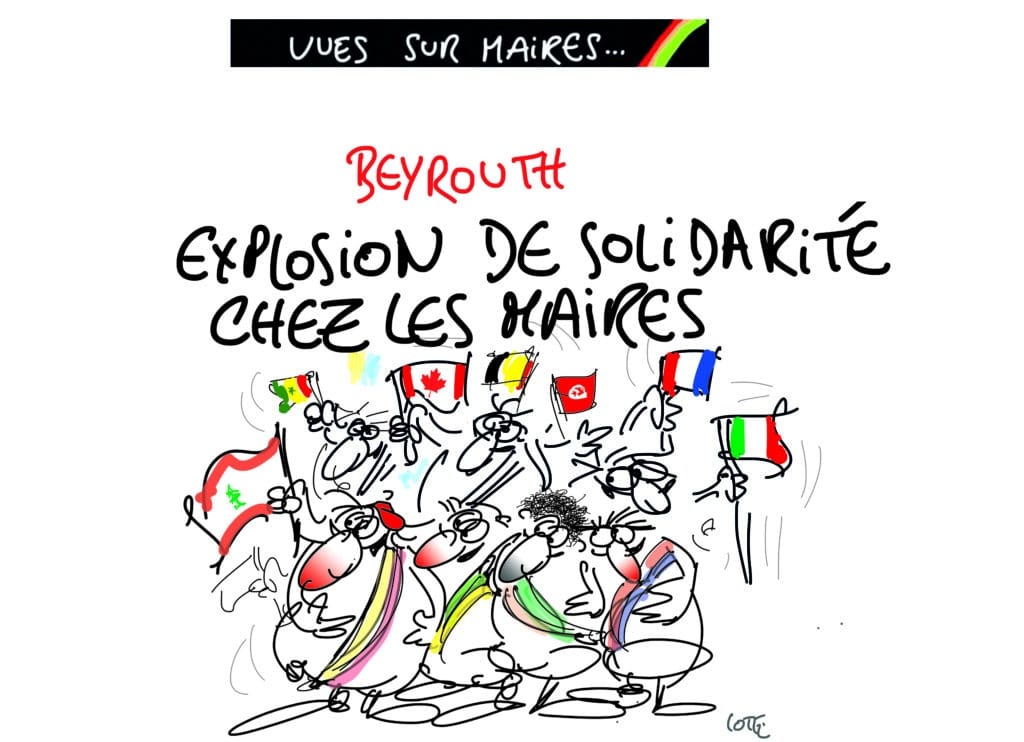 VUES SUR MAIRES...
BEYROUTH
EXPLOSION DE SOLIDARITÉ
CHEZ LES MAIRES